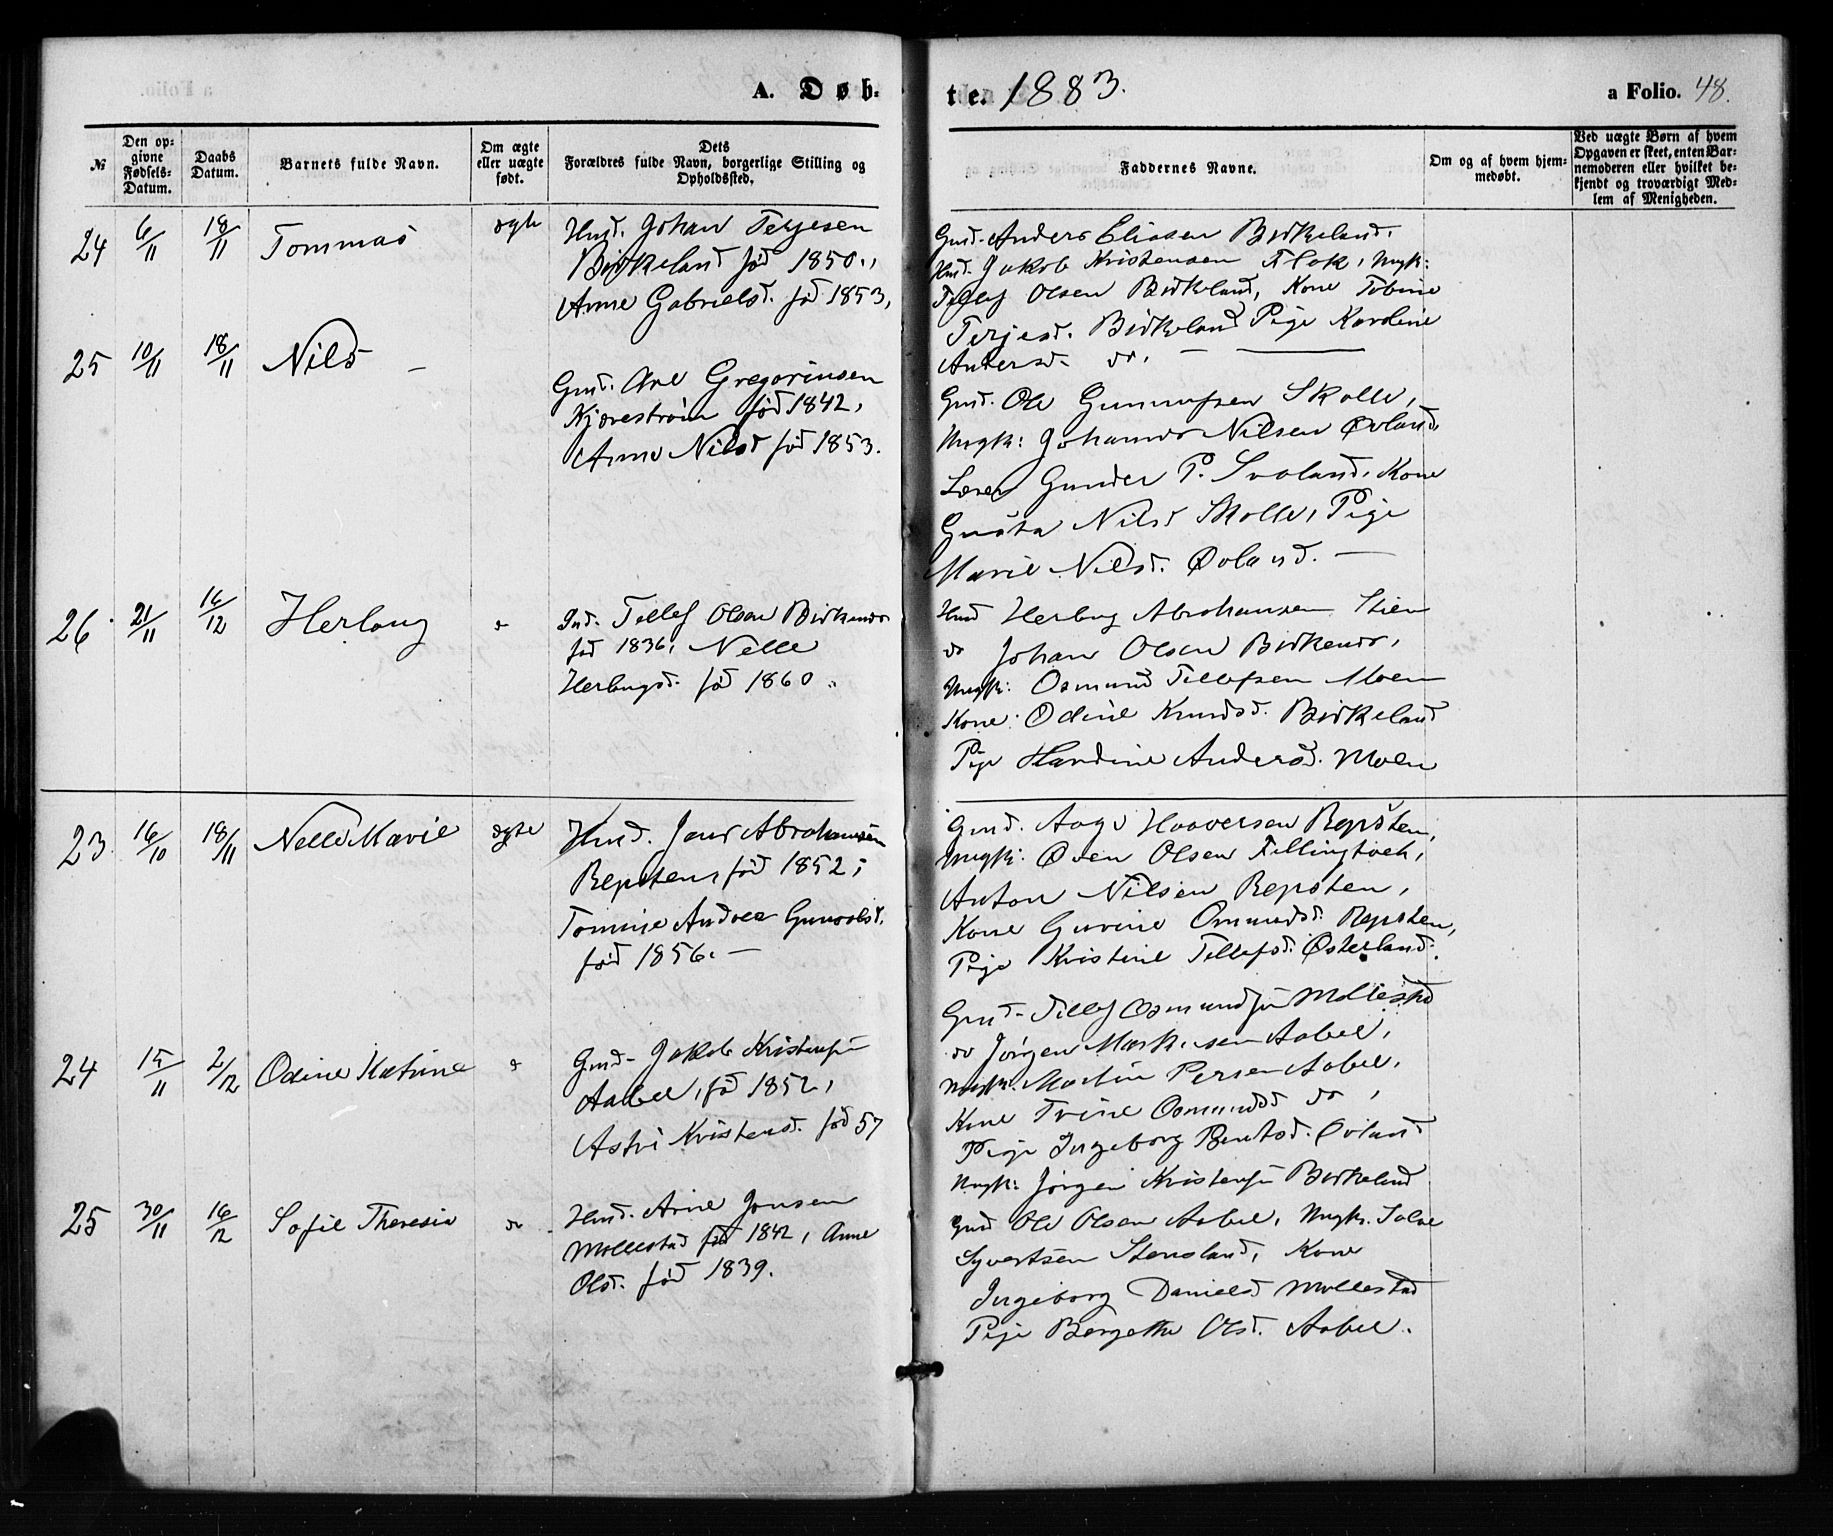 A. Døb-
te. 1883.
a Folio. 48.
№
Den op-
givne
Fødsels-
Datum.
Daabs
Datum.
Barnets fulde Navn.
Om ægte
eller uægte
født.
Dets
Forældres fulde Navn, borgerlige Stilling og
Opholdssted.
Faddernes Navne.
Om og af hvem hjem-
medøbt.
Ved uægte Børn af hvem
Opgaven er skeet, enten Bar-
nemoderen eller hvilket be-
kjendt og troværdigt Med-
lem af Menigheden.
24 6/11 18/11 Tommas ægte
Hmd. Johan Terjesen
Birkeland fød 1850.,
Anne Gabrielsd. fød 1853,
Gmd. Anders Eliasen Birkeland.
Hmd. Jakob Kristensen Flak, Ungk:
Tellef Olsen Birkeland, Kone Tobine
Terjesd. Birkeland Pige Karoline
Andersd. do. —
25 10/11 18/11 Nils —
Gmd. Arel Gregoriusen
Kjærestrøm fød 1842,
Anne Nilsd fød 1853.
Gmd. Ole Gunnufsen Skolle,
Ungk: Johannes Nilsen Øvland,
Lærer Gunder P. Svaland, Kone
Gusta Nilsd Skolle, Pige
Marie Nilsd. Øvland. —
26. 21/11 16/12 Herlaug do
Ind. Tellef Olsen Birkenes
fød 1836, Nelle
Herlugsd. fød 1860.
Hmd Herlug Abrahamsen Stien
do Johan Olsen Birkenes,
Ungk: Osmund Tellefsen Moen
Kone: Odine Knudsd. Birkeland
Pige Handine Andersd. Moen
23. 16/10 18/11 Nelle Marie ægte
Hmd. Jens Abrahamsen
Repsten, fød 1852,
Tomine Andrea Gunvalsd.
fød 1856. —
Gmd. Aage Haaversen Repsten,
Ungk: Øven Olsen Fillingbæk,
Anton Nilsen Repsten,
Kone Gurine Omundsd. Repsten,
Pige Kristine Tellefsd. Østerland.
24 15/11 2/12 Odine Katrine do
Gmd. Jakob Kristensen
Aabel, fød 1852,
Astri Kristensd. fød 57
Gmd. Tellef Osmundsen Mollestad
do Jørgen Markusen Aabel,
Ungk. Martin Persen Aabel,
Kone Trine Osmundsd do,
Pige Ingeborg Bentsd. Øvland
25 30/11 16/12 Sofie Theresie do
Hmd. Arne Jensen
Mollestad fød 1842, Anne
Olsd. fød 1839.
Ungk: Jørgen Kristensen Birkeland
Gmd Ole Olsen Aabel, Ungk. Salve
Syvertsen Stensland, Kone
Ingeborg Danielsd Mollestad
Pige Bergethe Olsd. Aabel.